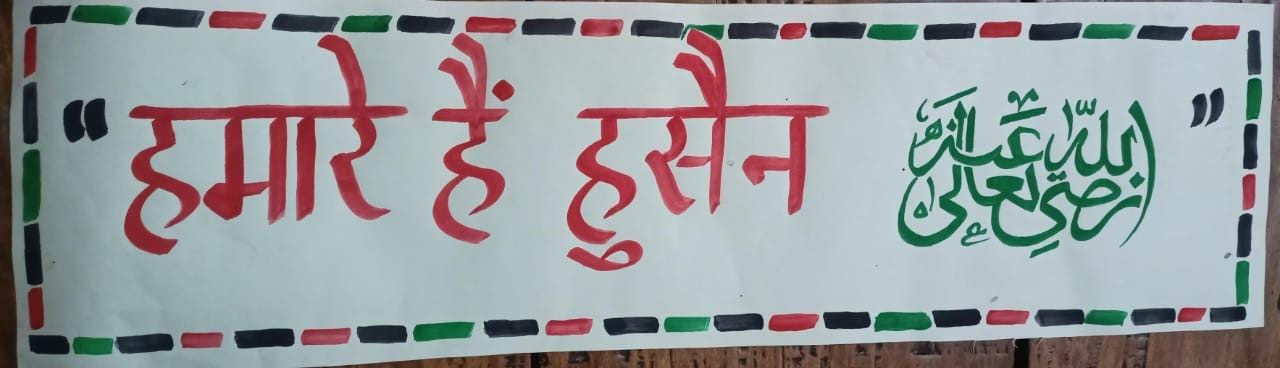 "हमारे हैं हुसैन رضي الله تعالى عنه"